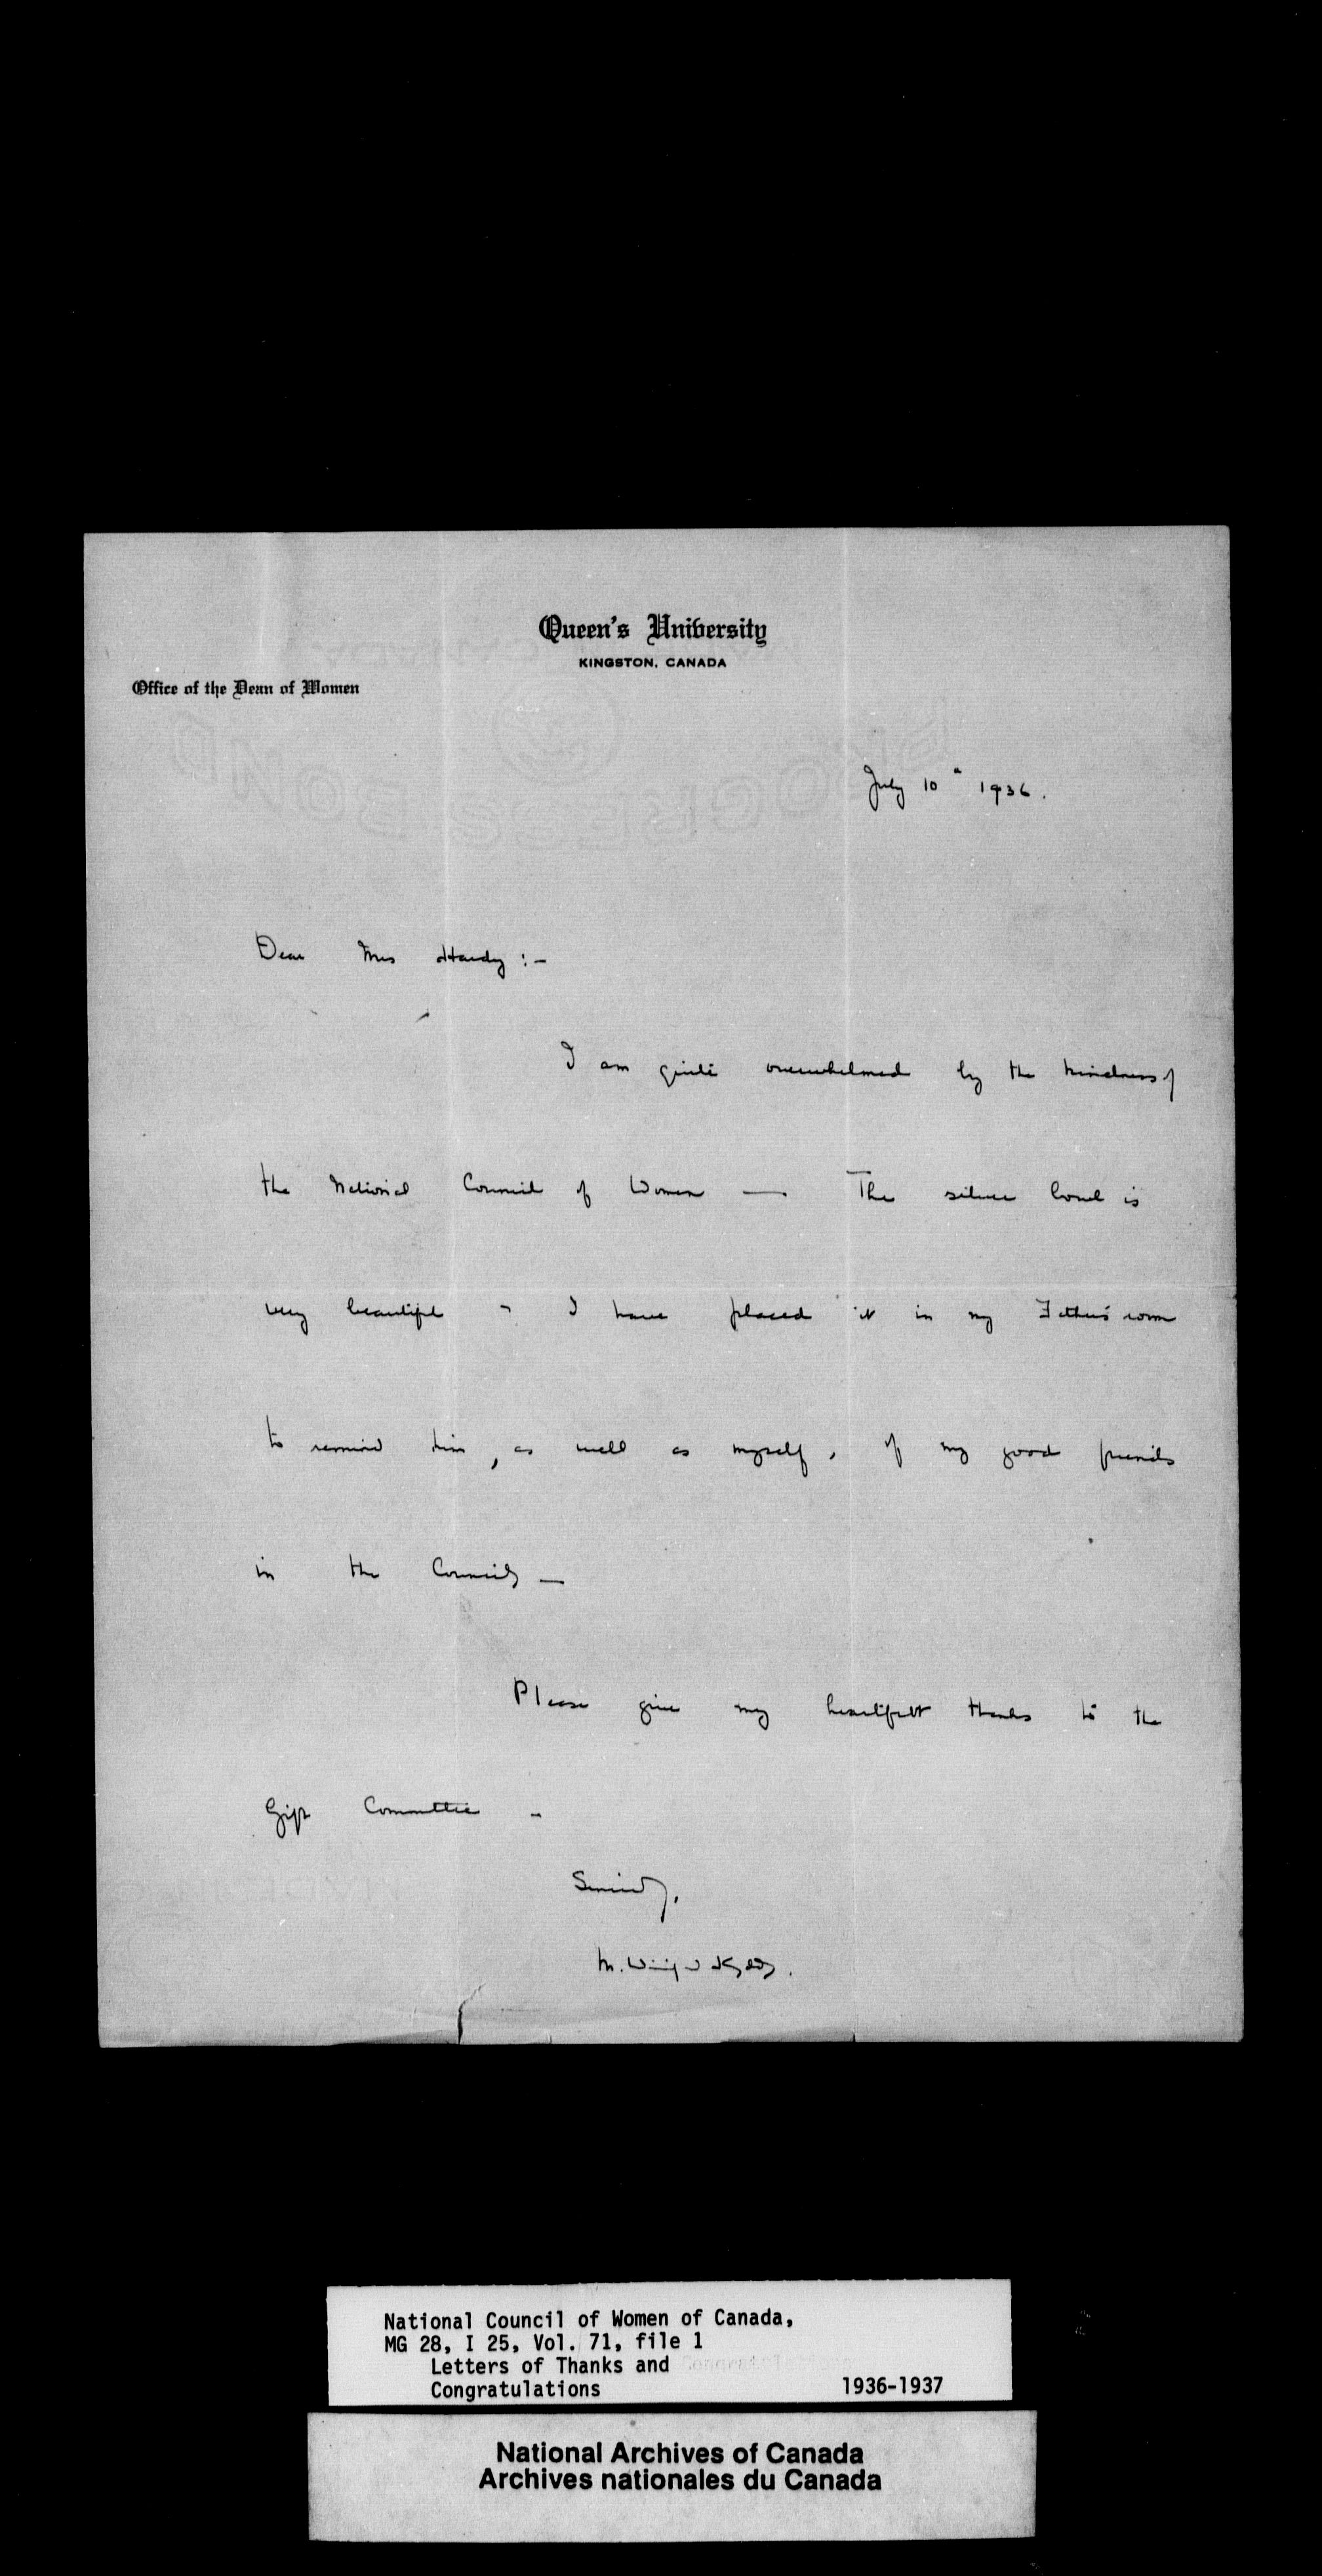 Queen's University
KINGSTON, CANADA
Office of the Dean of Women
July 10th 1936.
Dear Mrs Hardy :-
I am quite overwhelmed by the kindness of
the National Council of Women — The silver bowl is
very beautiful - I have placed it in my Father's room
to remind him, as well as myself, of my good friends
in the Councils —
Please give my heartfelt thanks to the
Gift Committee -
Sincerely,
M. Winifred Kydd.
National Council of Women of Canada,
MG 28, I 25, Vol. 71, file 1
Letters of Thanks and
Congratulations 1936-1937
National Archives of Canada
Archives nationales du Canada